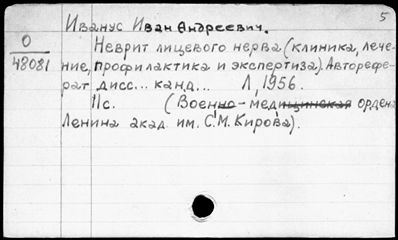 5
Иванус Иван Андреевич.
О
48081
Неврит лицевого нерва (клиника, лече-
ние, профилактика и экспертиза). Авторефе-
рат дисс... канд... Л, 1956.
11с. (Военно-медицинская ордена
Ленина акад. им. С.М. Кирова).